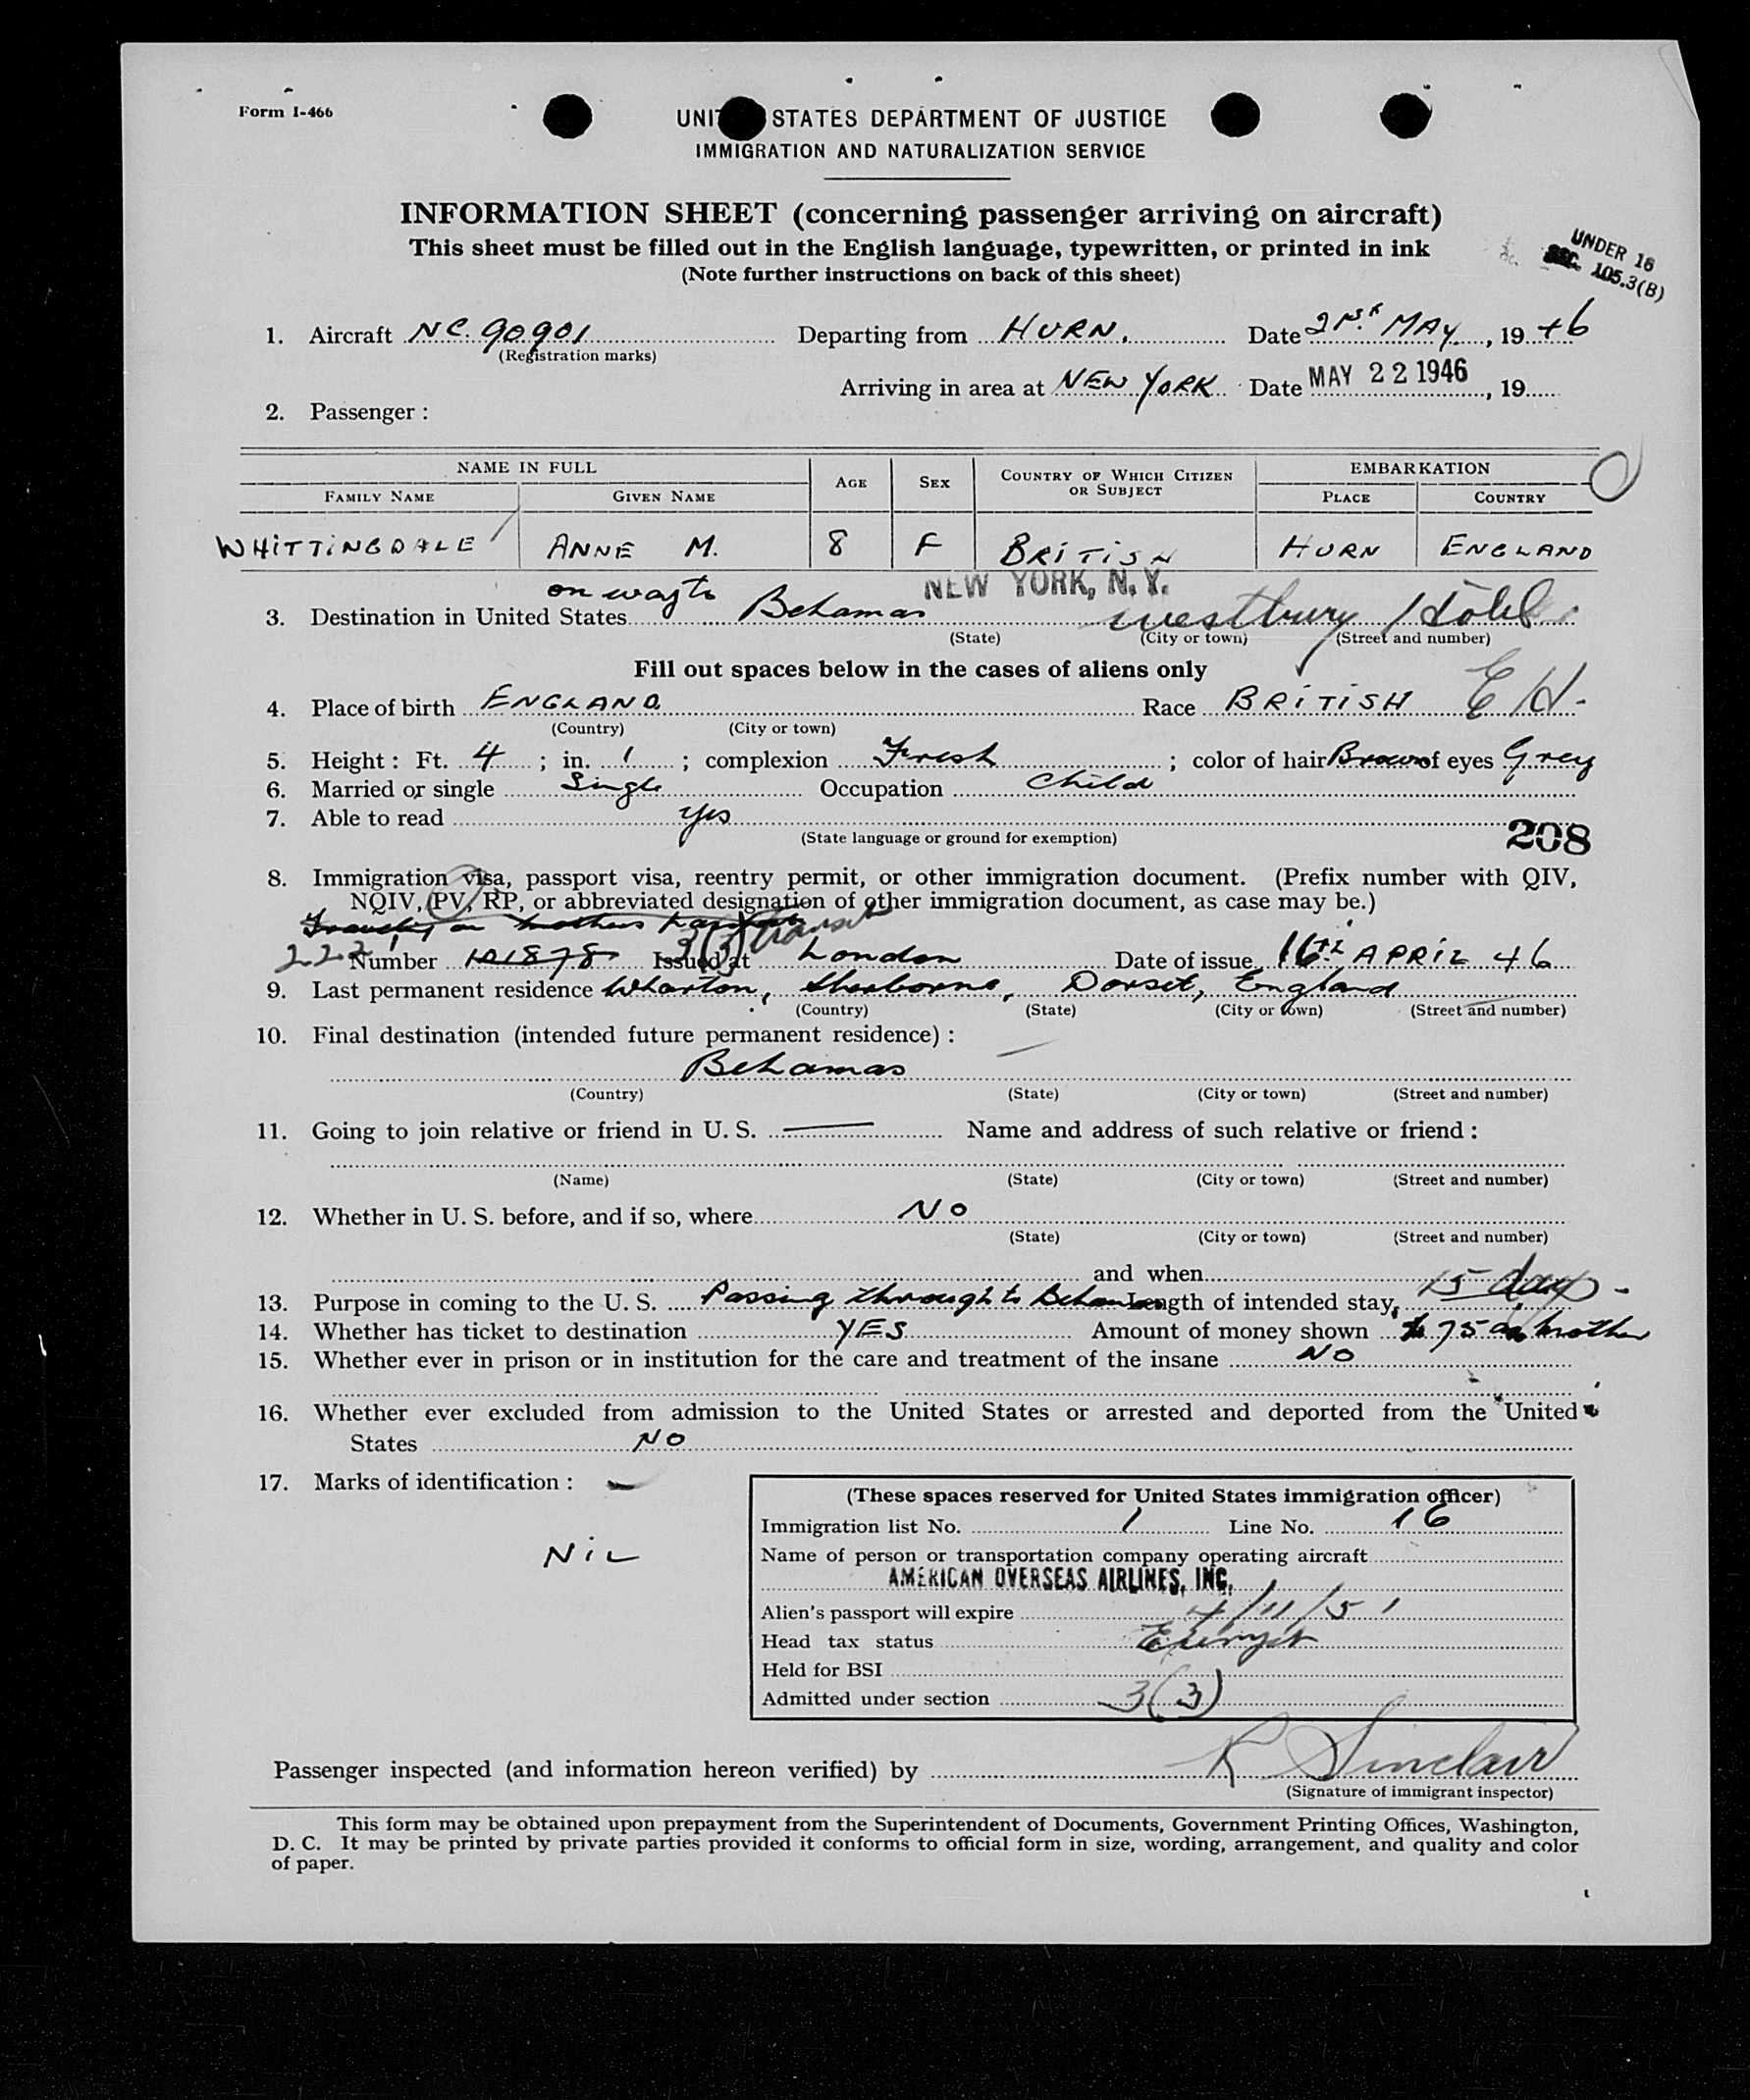 Form I-466
UNI STATES DEPARTMENT OF JUSTICE
IMMIGRATION AND NATURALIZATION SERVICE
INFORMATION SHEET (concerning passenger arriving on aircraft)
This sheet must be filled out in the English language, typewritten, or printed in ink
(Note further instructions on back of this sheet)
UNDER 16
SEC. 105.3(B)
1. Aircraft NC. 90901 Departing from HURN. Date 21st MAY, 19 46
(Registration marks)
Arriving in area at NEW YORK Date MAY 22 1946, 19
2. Passenger :
NAME IN FULL AGE SEX COUNTRY OF WHICH CITIZEN OR SUBJECT EMBARKATION
FAMILY NAME GIVEN NAME PLACE COUNTRY
WHITTINGDALE ANNE M. 8 F BRITISH HURN ENGLAND
on way to NEW YORK, N.Y.
3. Destination in United States Bahamas Westbury Hotel
(State) (City or town) (Street and number)
Fill out spaces below in the cases of aliens only
4. Place of birth ENGLAND Race BRITISH EH-
(Country) (City or town)
5. Height : Ft. 4 ; in. 1 ; complexion Fresh ; color of hair Brown of eyes Grey
6. Married or single Single Occupation Child
7. Able to read Yes
(State language or ground for exemption)
208
8. Immigration visa, passport visa, reentry permit, or other immigration document. (Prefix number with QIV,
NQIV, PV, RP, or abbreviated designation of other immigration document, as case may be.)
3(3) transit
Number 101878 Issued at London Date of issue 16th APRIL 46
9. Last permanent residence Wharton, Sherborne, Dorset, England
(Country) (State) (City or town) (Street and number)
10. Final destination (intended future permanent residence) :
Bahamas
(Country) (State) (City or town) (Street and number)
11. Going to join relative or friend in U. S. Name and address of such relative or friend :
(Name) (State) (City or town) (Street and number)
12. Whether in U. S. before, and if so, where NO
(State) (City or town) (Street and number)
and when
13. Purpose in coming to the U. S. Passing through to Bahamas Length of intended stay, 15 days -
14. Whether has ticket to destination YES Amount of money shown 75 mother
15. Whether ever in prison or in institution for the care and treatment of the insane NO
16. Whether ever excluded from admission to the United States or arrested and deported from the United
States NO
17. Marks of identification :
NiL
(These spaces reserved for United States immigration officer)
Immigration list No. 1 Line No. 16
Name of person or transportation company operating aircraft
AMERICAN OVERSEAS AIRLINES, INC.
Alien's passport will expire 4/11/51
Head tax status Exempt
Held for BSI
Admitted under section 3(3)
Passenger inspected (and information hereon verified) by R Sinclair
(Signature of immigrant inspector)
This form may be obtained upon prepayment from the Superintendent of Documents, Government Printing Offices, Washington,
D. C. It may be printed by private parties provided it conforms to official form in size, wording, arrangement, and quality and color
of paper.